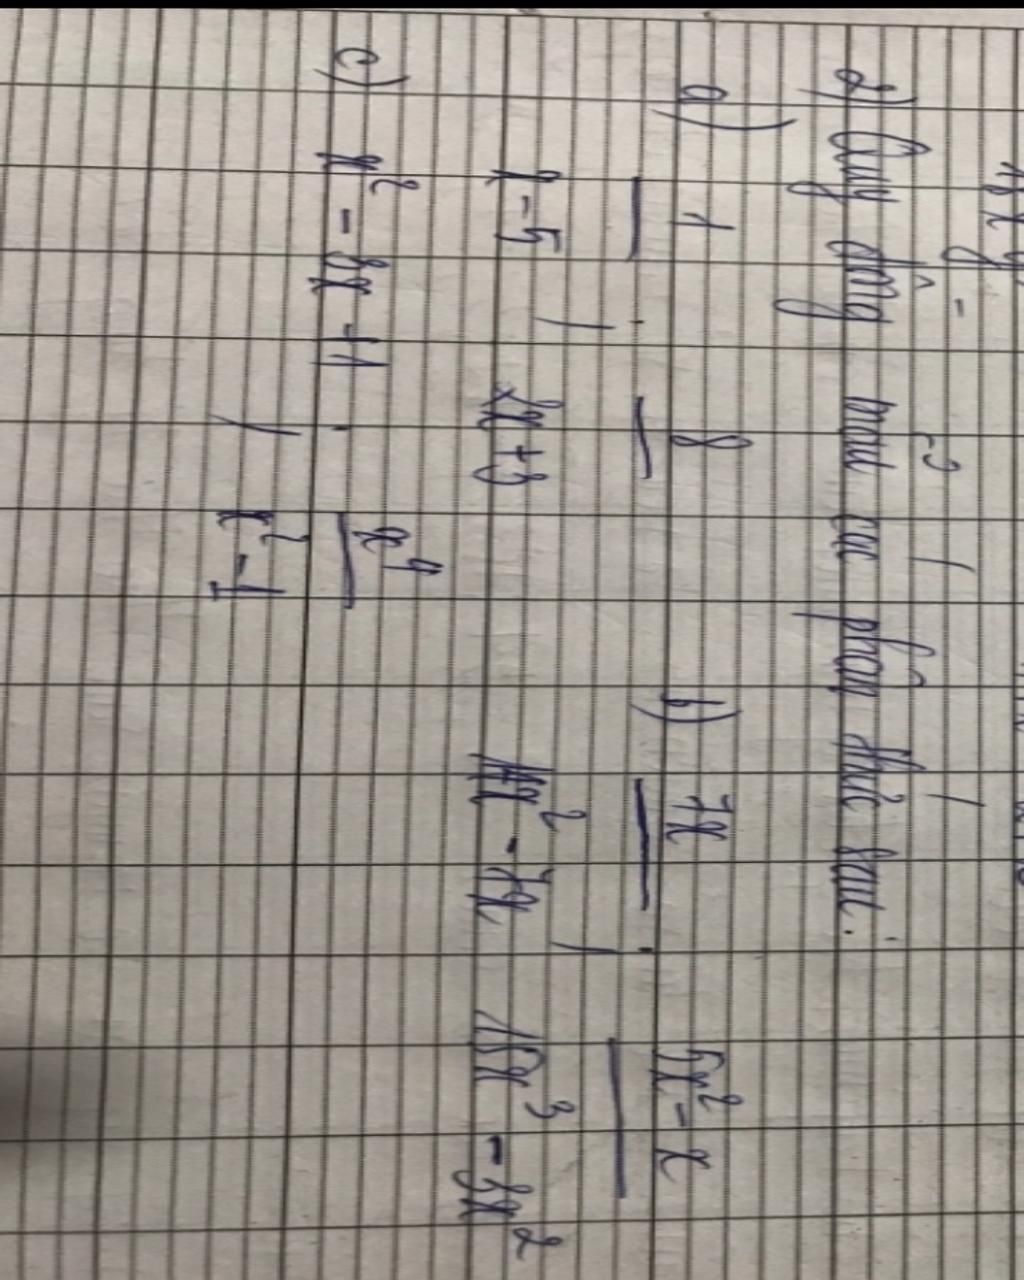 2) Quy đồng mẫu các phân thức sau:
a) 1/(x - 5) ; 8/(2x + 3) b) 7x/(14x² - 7x) ; (5x² - x)/(15x³ - 3x²)
c) x² - 3x + 1 ; x⁴/(x² - 1)